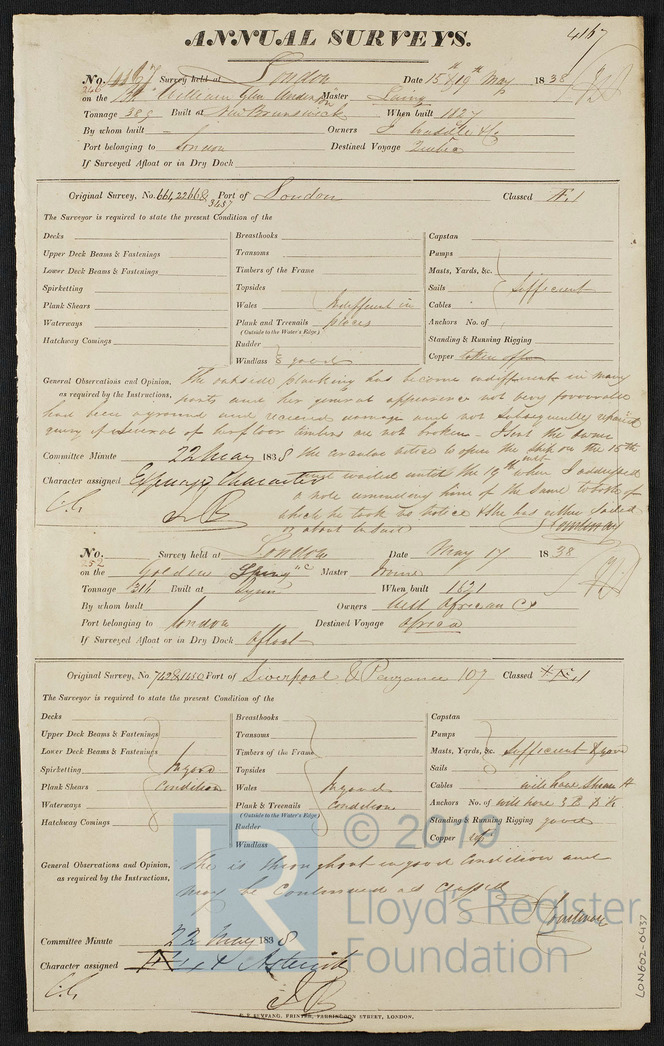 ANNUAL SURVEYS.
4167
No. 4167 Survey held at London Date 15th & 19th May 1838
246
on the Bk William Glen Anderson Master Laing
Tonnage 389 Built at New Brunswick When built 1827
By whom built Owners J Waddle & Co
Port belonging to London Destined Voyage Quebec
If Surveyed Afloat or in Dry Dock
Original Survey, No. 661, 2266 & 3437 Port of London Classed Æ 1
The Surveyor is required to state the present Condition of the
Decks
Upper Deck Beams & Fastenings
Lower Deck Beams & Fastenings
Spirketting
Plank Shears
Waterways
Hatchway Comings
Breasthooks
Transoms
Timbers of the Frame
Topsides
Wales Indifferent in
Plank and Treenails places
(Outside to the Water's Edge)
Rudder
Windlass good
Capstan
Pumps
Masts, Yards, &c.
Sails Sufficient
Cables
Anchors No. of
Standing & Running Rigging
Copper taken off
General Observations and Opinion, as required by the Instructions,
The outside planking has become indifferent in many
parts and her general appearance not being favourable
had been aground and received damage and not subsequently repaired
query if several of her floor timbers are not broken - I sent the owner
the circular notice to open the ship on the 15th
and waited until the 19th when I addressed
a note reminding him of the same to both of
which he took no notice & she has either sailed
or about to
Committee Minute 22 May 1838
Character assigned Expunge Character
Courtenay
No. Survey held at London Date May 17 1838
252
on the Golden Spring Master Irvine
Tonnage 316 Built at Lynn When built 1821
By whom built Owners West African Co
Port belonging to London Destined Voyage Africa
If Surveyed Afloat or in Dry Dock Afloat
Original Survey, No. 742 & 1450 Port of Liverpool & Penzance 107 Classed Æ 1
The Surveyor is required to state the present Condition of the
Decks
Upper Deck Beams & Fastenings
Lower Deck Beams & Fastenings
Spirketting In good
Plank Shears Condition
Waterways
Hatchway Comings
Breasthooks
Transoms
Timbers of the Frame
Topsides
Wales In good
Plank & Treenails Condition
(Outside to the Water's Edge)
Rudder
Windlass
Capstan
Pumps
Masts, Yards, &c. Sufficient & good
Sails
Cables will have
Anchors No. of will have 3 B
Standing & Running Rigging good
Copper
General Observations and Opinion, as required by the Instructions,
She is throughout in good Condition and
may be Continued as classed
Courtenay
Committee Minute 22 May 1838
Character assigned Æ 1 Asterisk
© 2019
LR
Lloyd's Register
Foundation
LON602-0437
SEYFANG, PRINTER, FARRINGDON STREET, LONDON.